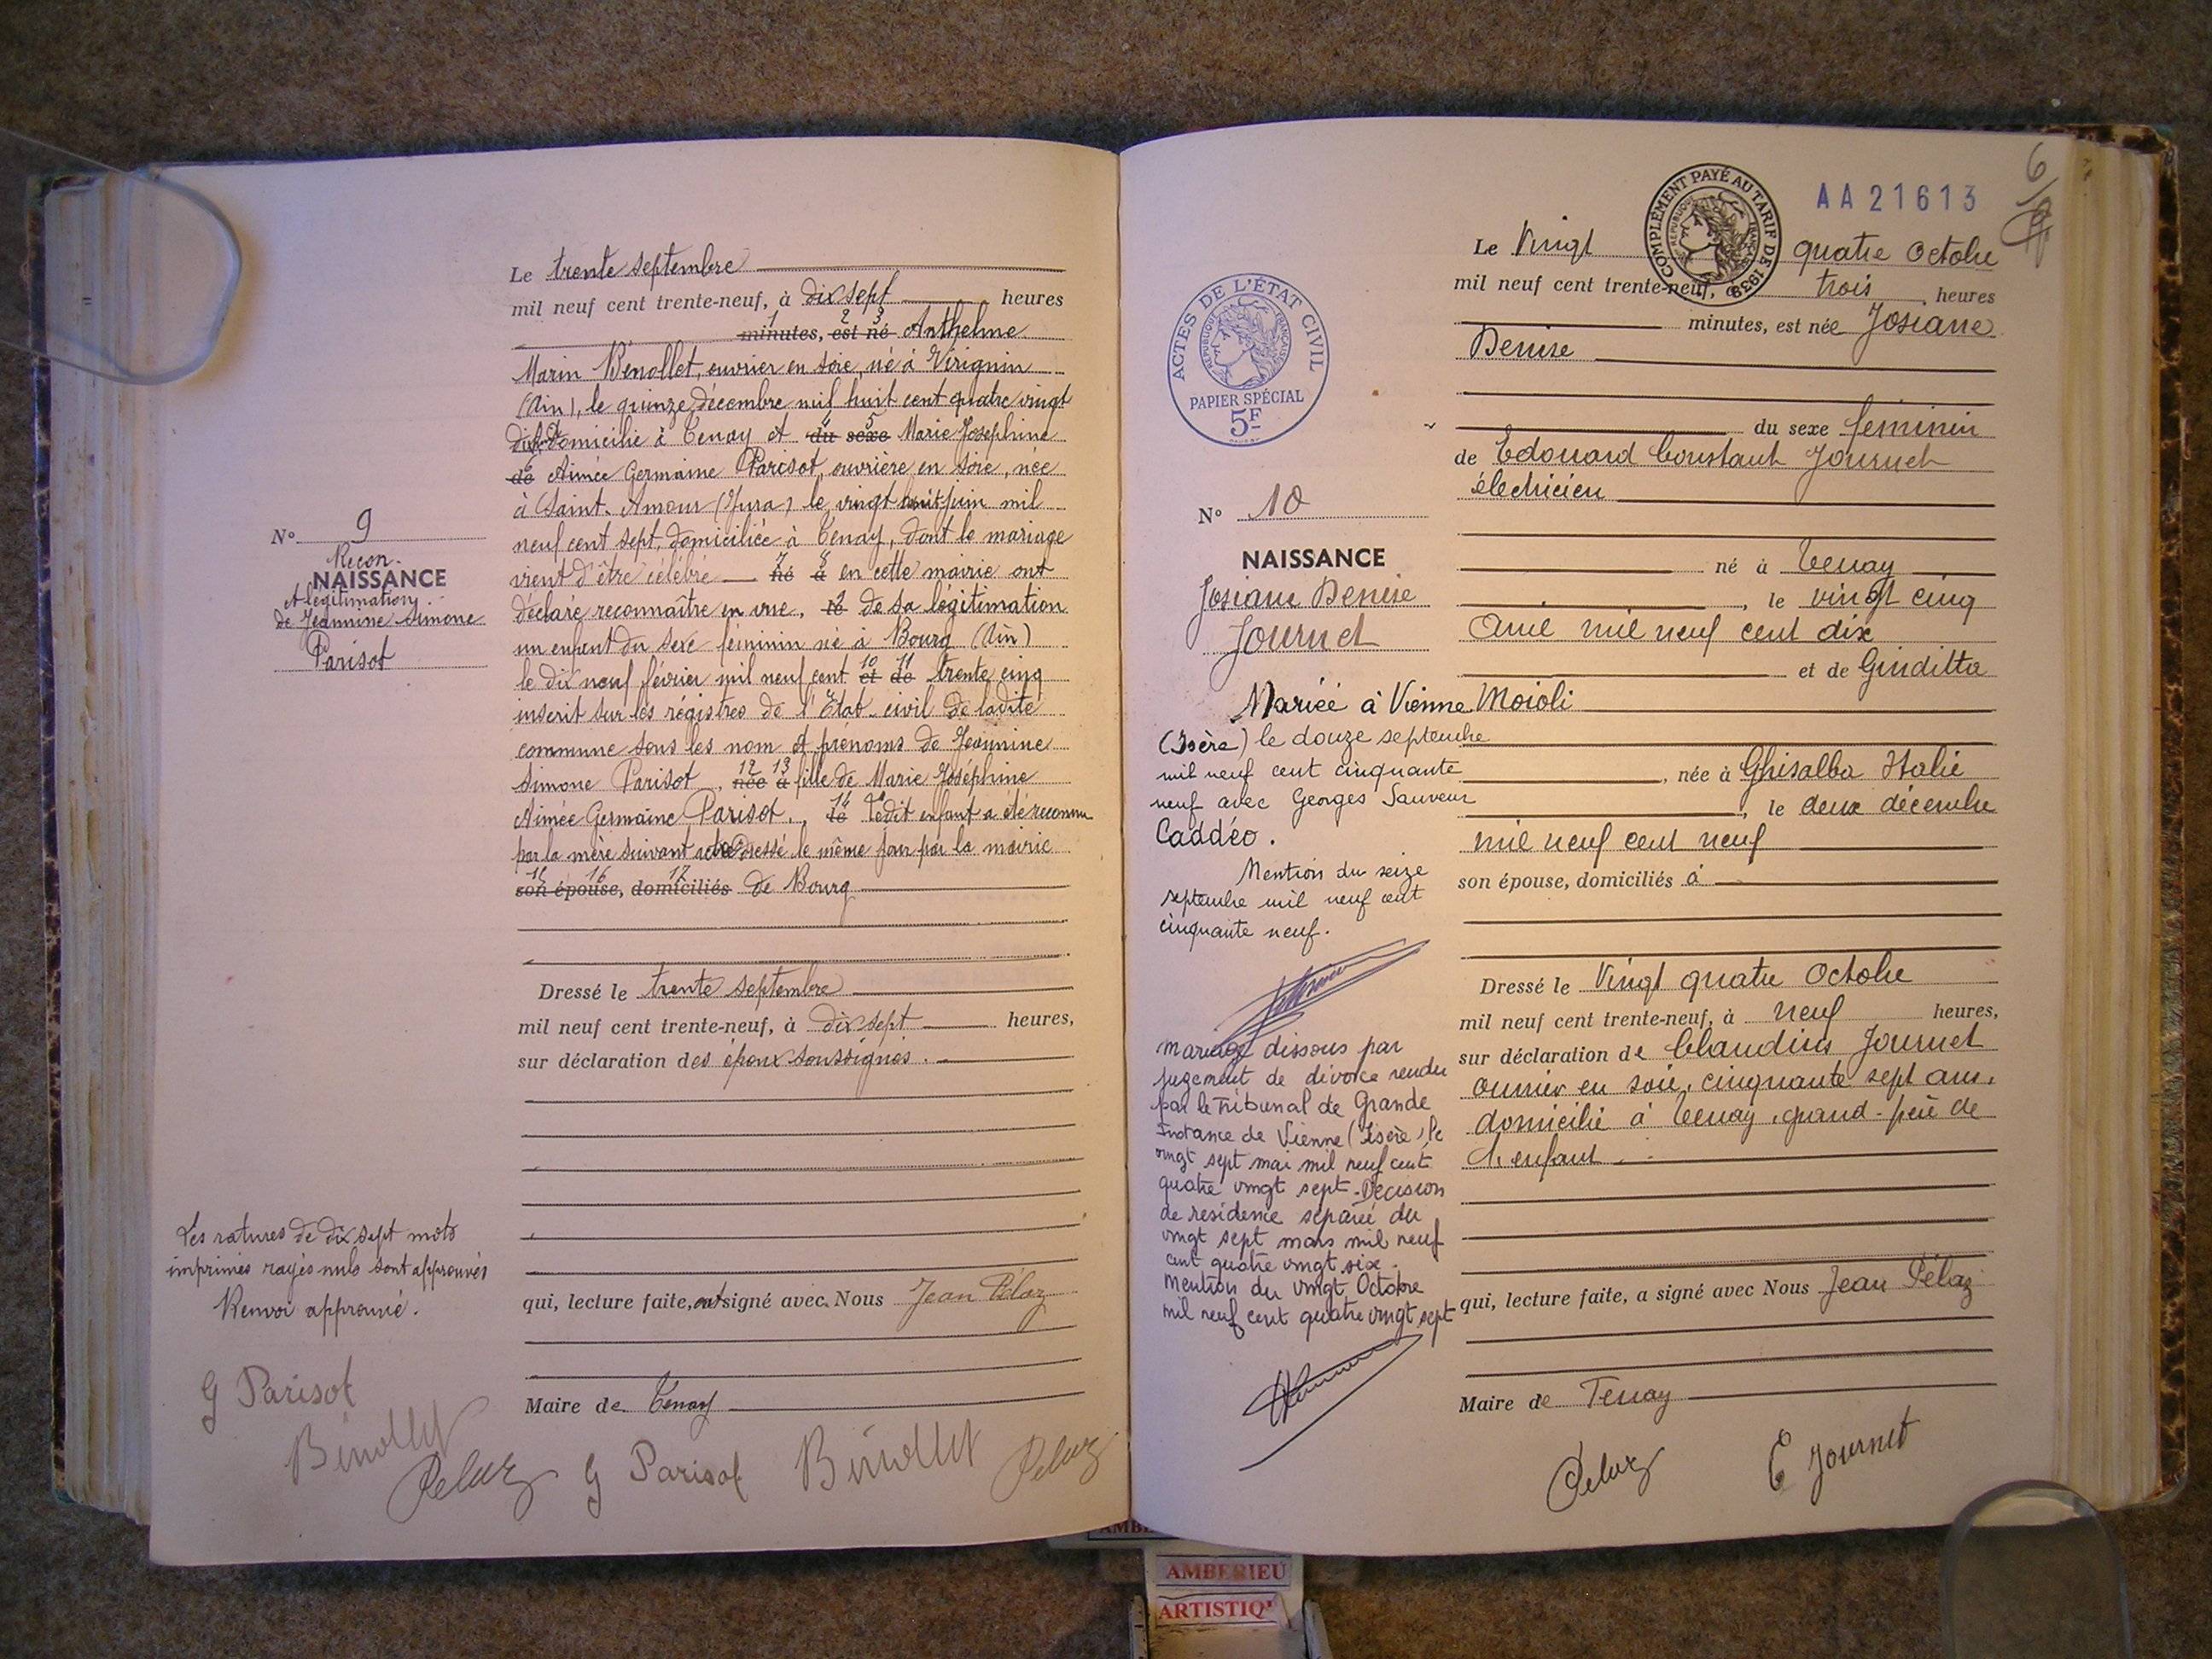 Le trente septembre
mil neuf cent trente-neuf, à dix sept heures
minutes, est né Anthelme
1 2 3
Marin Bénollet, ouvrier en soie, né à Virignin
(Ain), le quinze décembre mil huit cent quatre vingt
domicilié à Tenay et du sexe Marie Joséphine
5
de Aimée Germaine Parisot, ouvrière en soie, née
6
à Saint-Amour (Jura) le vingt huit juin mil
neuf cent sept, domiciliée à Tenay, dont le mariage
vient d'être célébré né à en cette mairie ont
7 8
déclaré reconnaître en vue, le de sa légitimation
9
un enfant du sexe féminin né à Bourg (Ain)
le dix neuf février mil neuf cent et de trente cinq
10 11
inscrit sur les régistres de l'Etat-civil de ladite
commune sous les nom et prénoms de Jeannine
Simone Parisot, née à fille de Marie Joséphine
12 13
Aimée Germaine Parisot, le ledit enfant a été reconnu
14
par la mère suivant acte dressé le même jour par la mairie
son épouse, domiciliés de Bourg
15 16 17
Dressé le trente septembre
mil neuf cent trente-neuf, à dix sept heures,
sur déclaration des époux soussignés.
qui, lecture faite, ont signé avec Nous Jean Pélaz
Maire de Tenay
N° 9
Recon-
NAISSANCE
et légitimation
de Jeannine Simone
Parisot
Les ratures de dix sept mots
imprimés rayés nuls sont approuvés
Renvoi approuvé.
G Parisot
Bénollet
Pelaz G Parisot Bénollet Pelaz
6
AA21613
COMPLÉMENT PAYÉ AU TARIF DE 1939
RÉPUBLIQUE FRANÇAISE
ACTES DE L'ÉTAT CIVIL
RÉPUBLIQUE FRANÇAISE
PAPIER SPÉCIAL
5F
N° 10
NAISSANCE
Josiane Denise
Journet
Mariée à Vienne
(Isère) le douze septembre
mil neuf cent cinquante
neuf avec Georges Sauveur
Caddéo.
Mention du seize
septembre mil neuf cent
cinquante neuf.
Mariage dissous par
jugement de divorce rendu
par le Tribunal de Grande
Instance de Vienne (Isère) le
vingt sept mai mil neuf cent
quatre vingt sept. Décision
de résidence séparée du
vingt sept mars mil neuf
cent quatre vingt six.
Mention du vingt Octobre
mil neuf cent quatre vingt sept
Le Vingt quatre Octobre
mil neuf cent trente-neuf, à trois heures
minutes, est née Josiane
Denise
du sexe féminin
de Edouard Constant Journet
électricien
né à Tenay
, le vingt cinq
Avril mil neuf cent dix
et de Giuditta
Moioli
, née à Ghisalba Italie
, le deux décembre
mil neuf cent neuf
son épouse, domiciliés à
Dressé le Vingt quatre Octobre
mil neuf cent trente-neuf, à neuf heures,
sur déclaration de Claudius Journet
ouvrier en soie, cinquante sept ans,
domicilié à Tenay, grand-père de
l'enfant
qui, lecture faite, a signé avec Nous Jean Pélaz
Maire de Tenay
Pelaz C Journet
AMBERIEU
ARTISTIQ